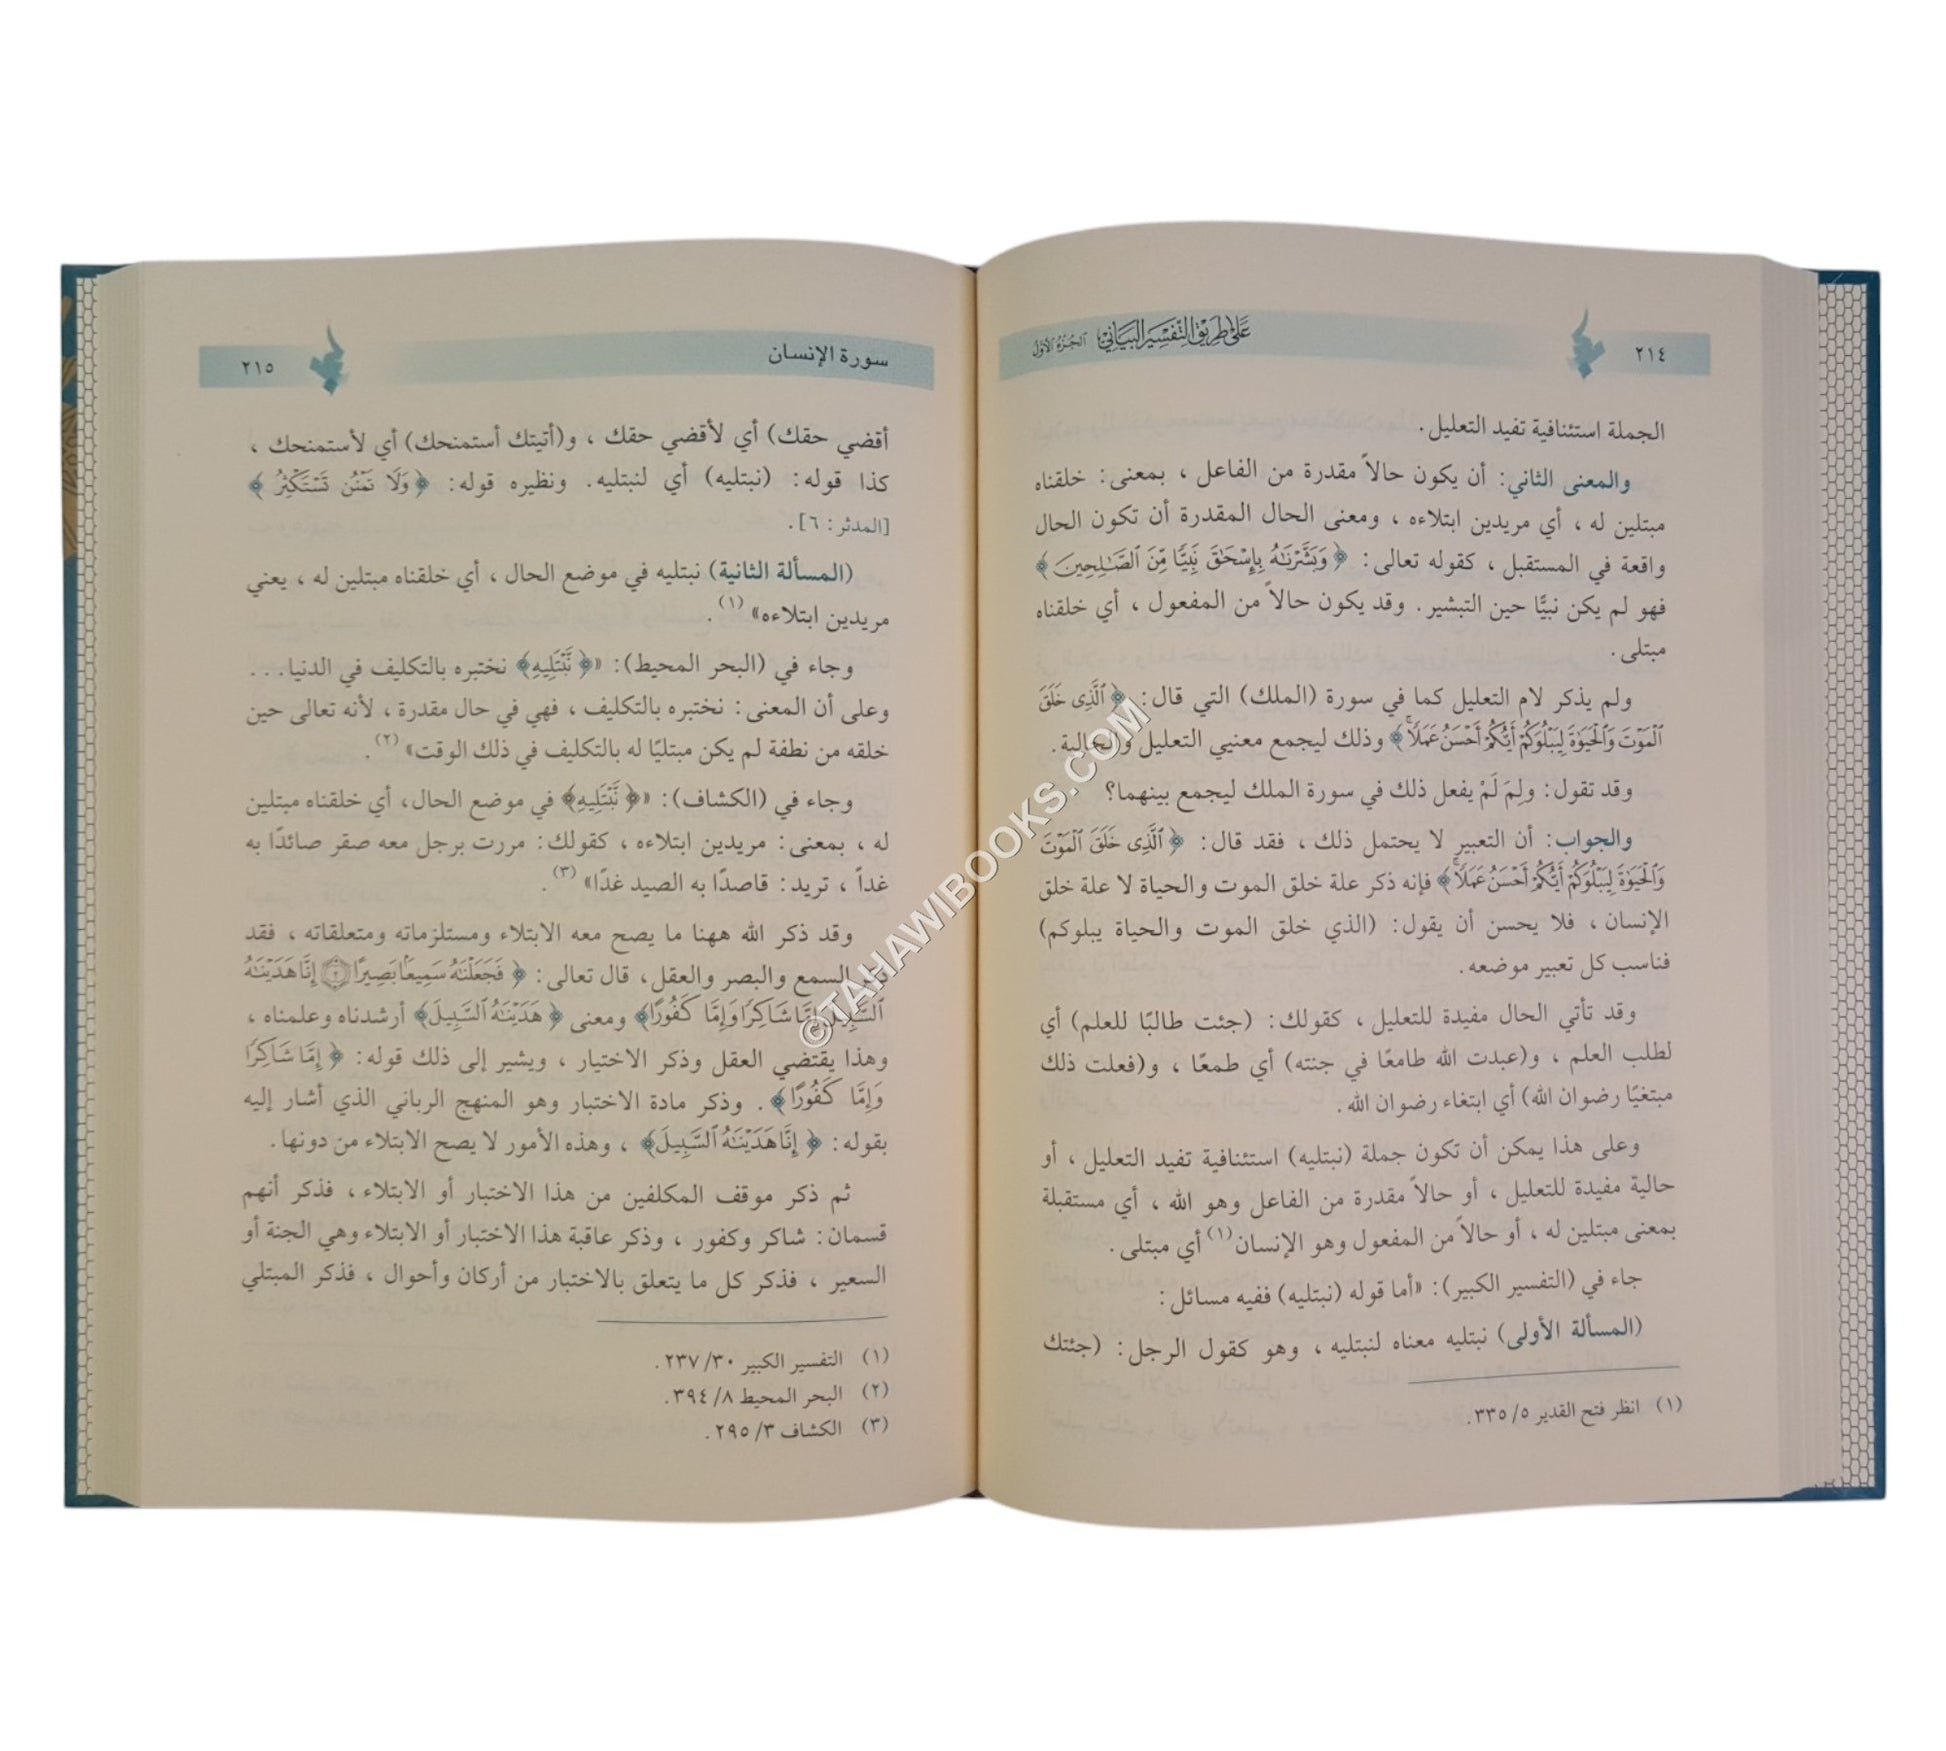 ٢١٤
على طريق التفسير البياني الجزء الأول
الجملة استئنافية تفيد التعليل.
والمعنى الثاني: أن يكون حالاً مقدرة من الفاعل ، بمعنى: خلقناه
مبتلين له ، أي مريدين ابتلاءه ، ومعنى الحال المقدرة أن تكون الحال
واقعة في المستقبل ، كقوله تعالى: ﴿ وَبَشَّرْنَٰهُ بِإِسْحَٰقَ نَبِيًّا مِّنَ ٱلصَّٰلِحِينَ ﴾
فهو لم يكن نبيًّا حين التبشير. وقد يكون حالاً من المفعول ، أي خلقناه
مبتلى.
ولم يذكر لام التعليل كما في سورة (الملك) التي قال: ﴿ ٱلَّذِى خَلَقَ
ٱلْمَوْتَ وَٱلْحَيَوٰةَ لِيَبْلُوَكُمْ أَيُّكُمْ أَحْسَنُ عَمَلًا ۚ﴾ وذلك ليجمع معنيي التعليل والحالية.
وقد تقول: ولِمَ لَمْ يفعل ذلك في سورة الملك ليجمع بينهما؟
والجواب: أن التعبير لا يحتمل ذلك ، فقد قال: ﴿ ٱلَّذِى خَلَقَ ٱلْمَوْتَ
وَٱلْحَيَوٰةَ لِيَبْلُوَكُمْ أَيُّكُمْ أَحْسَنُ عَمَلًا ۚ﴾ فإنه ذكر علة خلق الموت والحياة لا علة خلق
الإنسان ، فلا يحسن أن يقول: (الذي خلق الموت والحياة يبلوكم)
فناسب كل تعبير موضعه.
وقد تأتي الحال مفيدة للتعليل ، كقولك: (جئت طالبًا للعلم) أي
لطلب العلم ، و(عبدت الله طامعًا في جنته) أي طمعًا ، و(فعلت ذلك
مبتغيًا رضوان الله) أي ابتغاء رضوان الله.
وعلى هذا يمكن أن تكون جملة (نبتليه) استئنافية تفيد التعليل ، أو
حالية مفيدة للتعليل ، أو حالاً مقدرة من الفاعل وهو الله ، أي مستقبلة
بمعنى مبتلين له ، أو حالاً من المفعول وهو الإنسان(١) أي مبتلى.
جاء في (التفسير الكبير): «أما قوله (نبتليه) ففيه مسائل:
(المسألة الأولى) نبتليه معناه لنبتليه ، وهو كقول الرجل: (جئتك
(١) انظر فتح القدير ٥/ ٣٣٥.
سورة الإنسان
٢١٥
أقضي حقك) أي لأقضي حقك ، و(أتيتك أستمنحك) أي لأستمنحك ،
كذا قوله: (نبتليه) أي لنبتليه. ونظيره قوله: ﴿ وَلَا تَمْنُن تَسْتَكْثِرُ ﴾
[المدثر: ٦].
(المسألة الثانية) نبتليه في موضع الحال ، أي خلقناه مبتلين له ، يعني
مريدين ابتلاءه» (١).
وجاء في (البحر المحيط): «﴿ نَّبْتَلِيهِ﴾ نختبره بالتكليف في الدنيا...
وعلى أن المعنى: نختبره بالتكليف ، فهي في حال مقدرة ، لأنه تعالى حين
خلقه من نطفة لم يكن مبتليًا له بالتكليف في ذلك الوقت» (٢).
وجاء في (الكشاف): «﴿ نَّبْتَلِيهِ﴾ في موضع الحال، أي خلقناه مبتلين
له ، بمعنى: مريدين ابتلاءه ، كقولك: مررت برجل معه صقر صائدًا به
غداً ، تريد: قاصدًا به الصيد غدًا» (٣).
وقد ذكر الله ههنا ما يصح معه الابتلاء ومستلزماته ومتعلقاته ، فقد
ذكر السمع والبصر والعقل، قال تعالى: ﴿ فَجَعَلْنَٰهُ سَمِيعًۢا بَصِيرًا ٢ إِنَّا هَدَيْنَٰهُ
ٱلسَّبِيلَ إِمَّا شَاكِرًا وَإِمَّا كَفُورًا﴾ ومعنى ﴿ هَدَيْنَٰهُ ٱلسَّبِيلَ﴾ أرشدناه وعلمناه ،
وهذا يقتضي العقل وذكر الاختيار ، ويشير إلى ذلك قوله: ﴿ إِمَّا شَاكِرًا
وَإِمَّا كَفُورًا﴾. وذكر مادة الاختبار وهو المنهج الرباني الذي أشار إليه
بقوله: ﴿ إِنَّا هَدَيْنَٰهُ ٱلسَّبِيلَ﴾ ، وهذه الأمور لا يصح الابتلاء من دونها.
ثم ذكر موقف المكلفين من هذا الاختبار أو الابتلاء ، فذكر أنهم
قسمان: شاكر وكفور ، وذكر عاقبة هذا الاختبار أو الابتلاء وهي الجنة أو
السعير ، فذكر كل ما يتعلق بالاختبار من أركان وأحوال ، فذكر المبتلي
(١) التفسير الكبير ٣٠/ ٢٣٧.
(٢) البحر المحيط ٨/ ٣٩٤.
(٣) الكشاف ٣/ ٢٩٥.
©TAHAWIBOOKS.COM